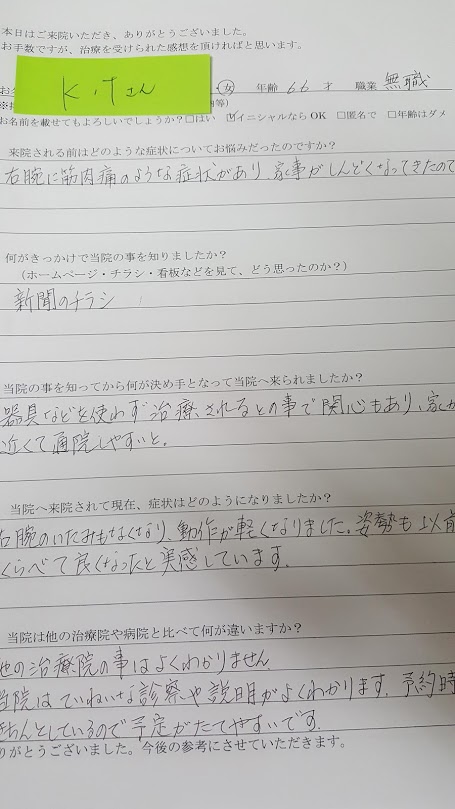 本日はご来院いただき、ありがとうございました。
お手数ですが、治療を受けられた感想を頂ければと思います。
K.Tさん
女 年齢 66 才 職業 無職
お名前を載せてもよろしいでしょうか?□はい ☑イニシャルなら OK □匿名で □年齢はダメ
来院される前はどのような症状についてお悩みだったのですか?
右腕に筋肉痛のような症状があり、家事がしんどくなってきたので
何がきっかけで当院の事を知りましたか?
(ホームページ・チラシ・看板などを見て、どう思ったのか?)
新聞のチラシ
当院の事を知ってから何が決め手となって当院へ来られましたか?
器具などを使わず治療されるとの事で関心もあり、家が
近くて通院しやすいと。
当院へ来院されて現在、症状はどのようになりましたか?
右腕のいたみもなくなり、動作が軽くなりました。姿勢も以前
くらべて良くなったと実感しています。
当院は他の治療院や病院と比べて何が違いますか?
他の治療院の事はよくわかりません
当院はていねいな診察や説明がよくわかります。予約時
きちんとしているので予定がたてやすいです。
りがとうございました。今後の参考にさせていただきます。